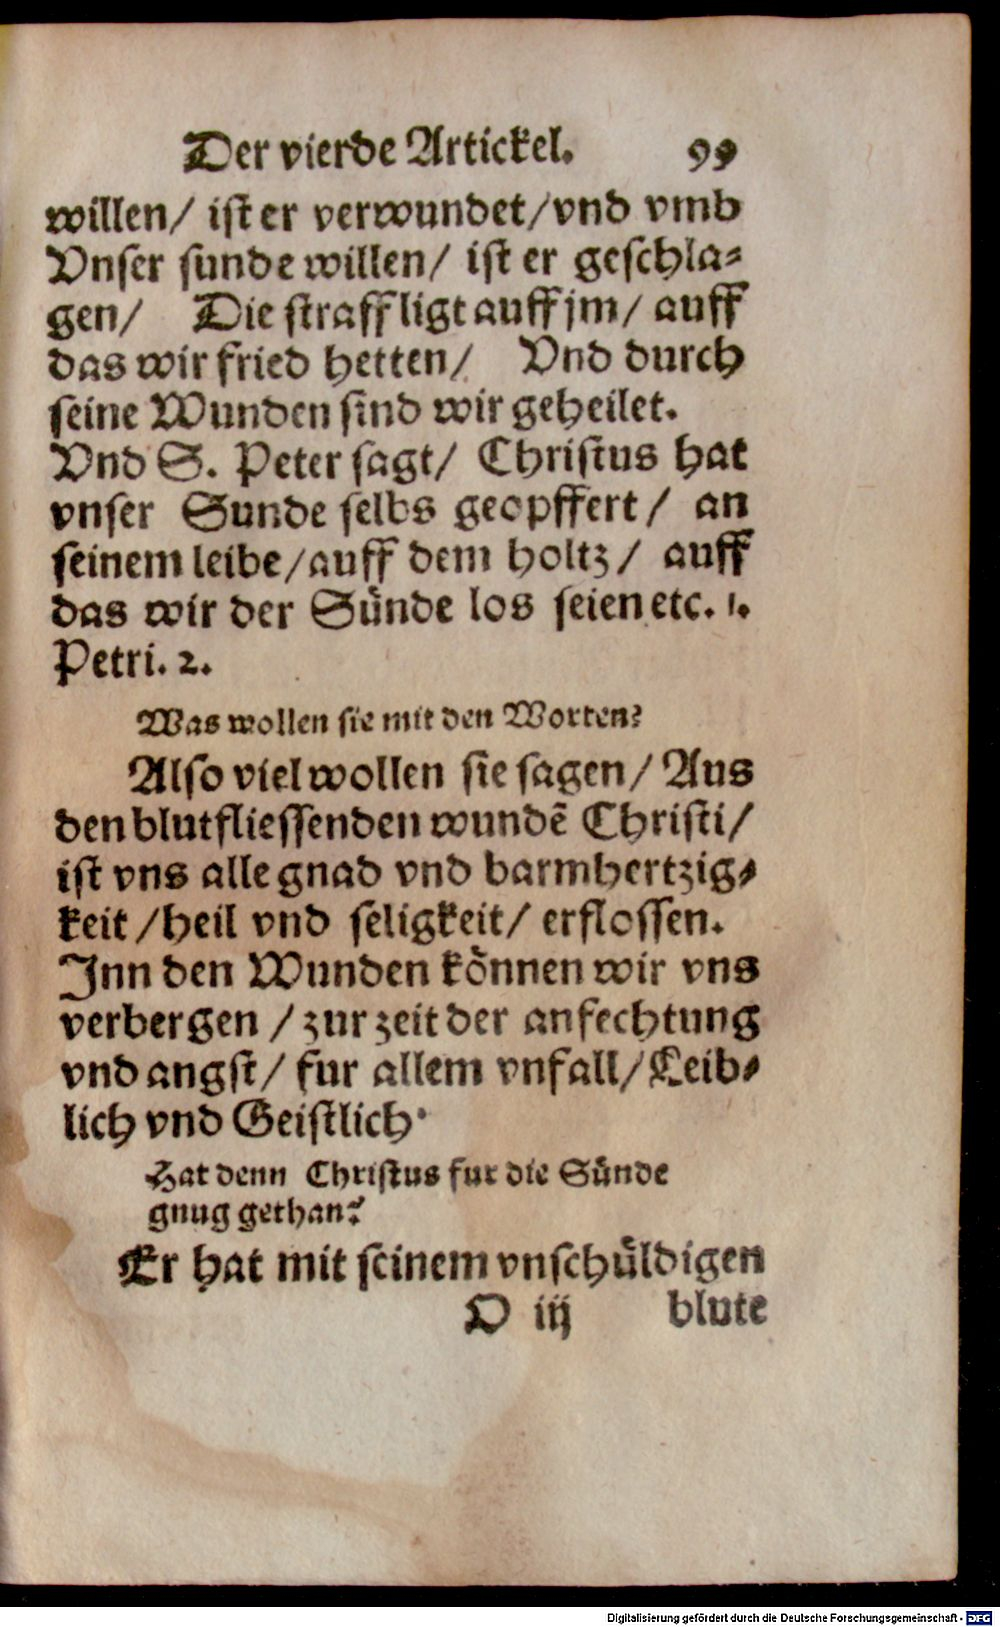 Der vierde Artickel. 99
willen/ ist er verwundet/vnd vmb
Vnser sunde willen/ ist er geschla⸗
gen/ Die straff ligt auff jm/ auff
das wir fried hetten/ Vnd durch
seine Wunden sind wir geheilet.
Vnd S. Peter sagt/ Christus hat
vnser Sunde selbs geopffert/ an
seinem leibe/auff dem holtz/ auff
das wir der Sünde los seien etc. 1.
Petri. 2.
Was wollen sie mit den Worten?
Also viel wollen sie sagen/ Aus
den blutfliessenden wundē Christi/
ist vns alle gnad vnd barmhertzig⸗
keit/heil vnd seligkeit/ erflossen.
Inn den Wunden können wir vns
verbergen/zur zeit der anfechtung
vnd angst/ fur allem vnfall/Leib⸗
lich vnd Geistlich.
Hat denn Christus fur die Sünde
gnug gethan?
Er hat mit seinem vnschüldigen
O iij blute
Digitalisierung gefördert durch die Deutsche Forschungsgemeinschaft - DFG